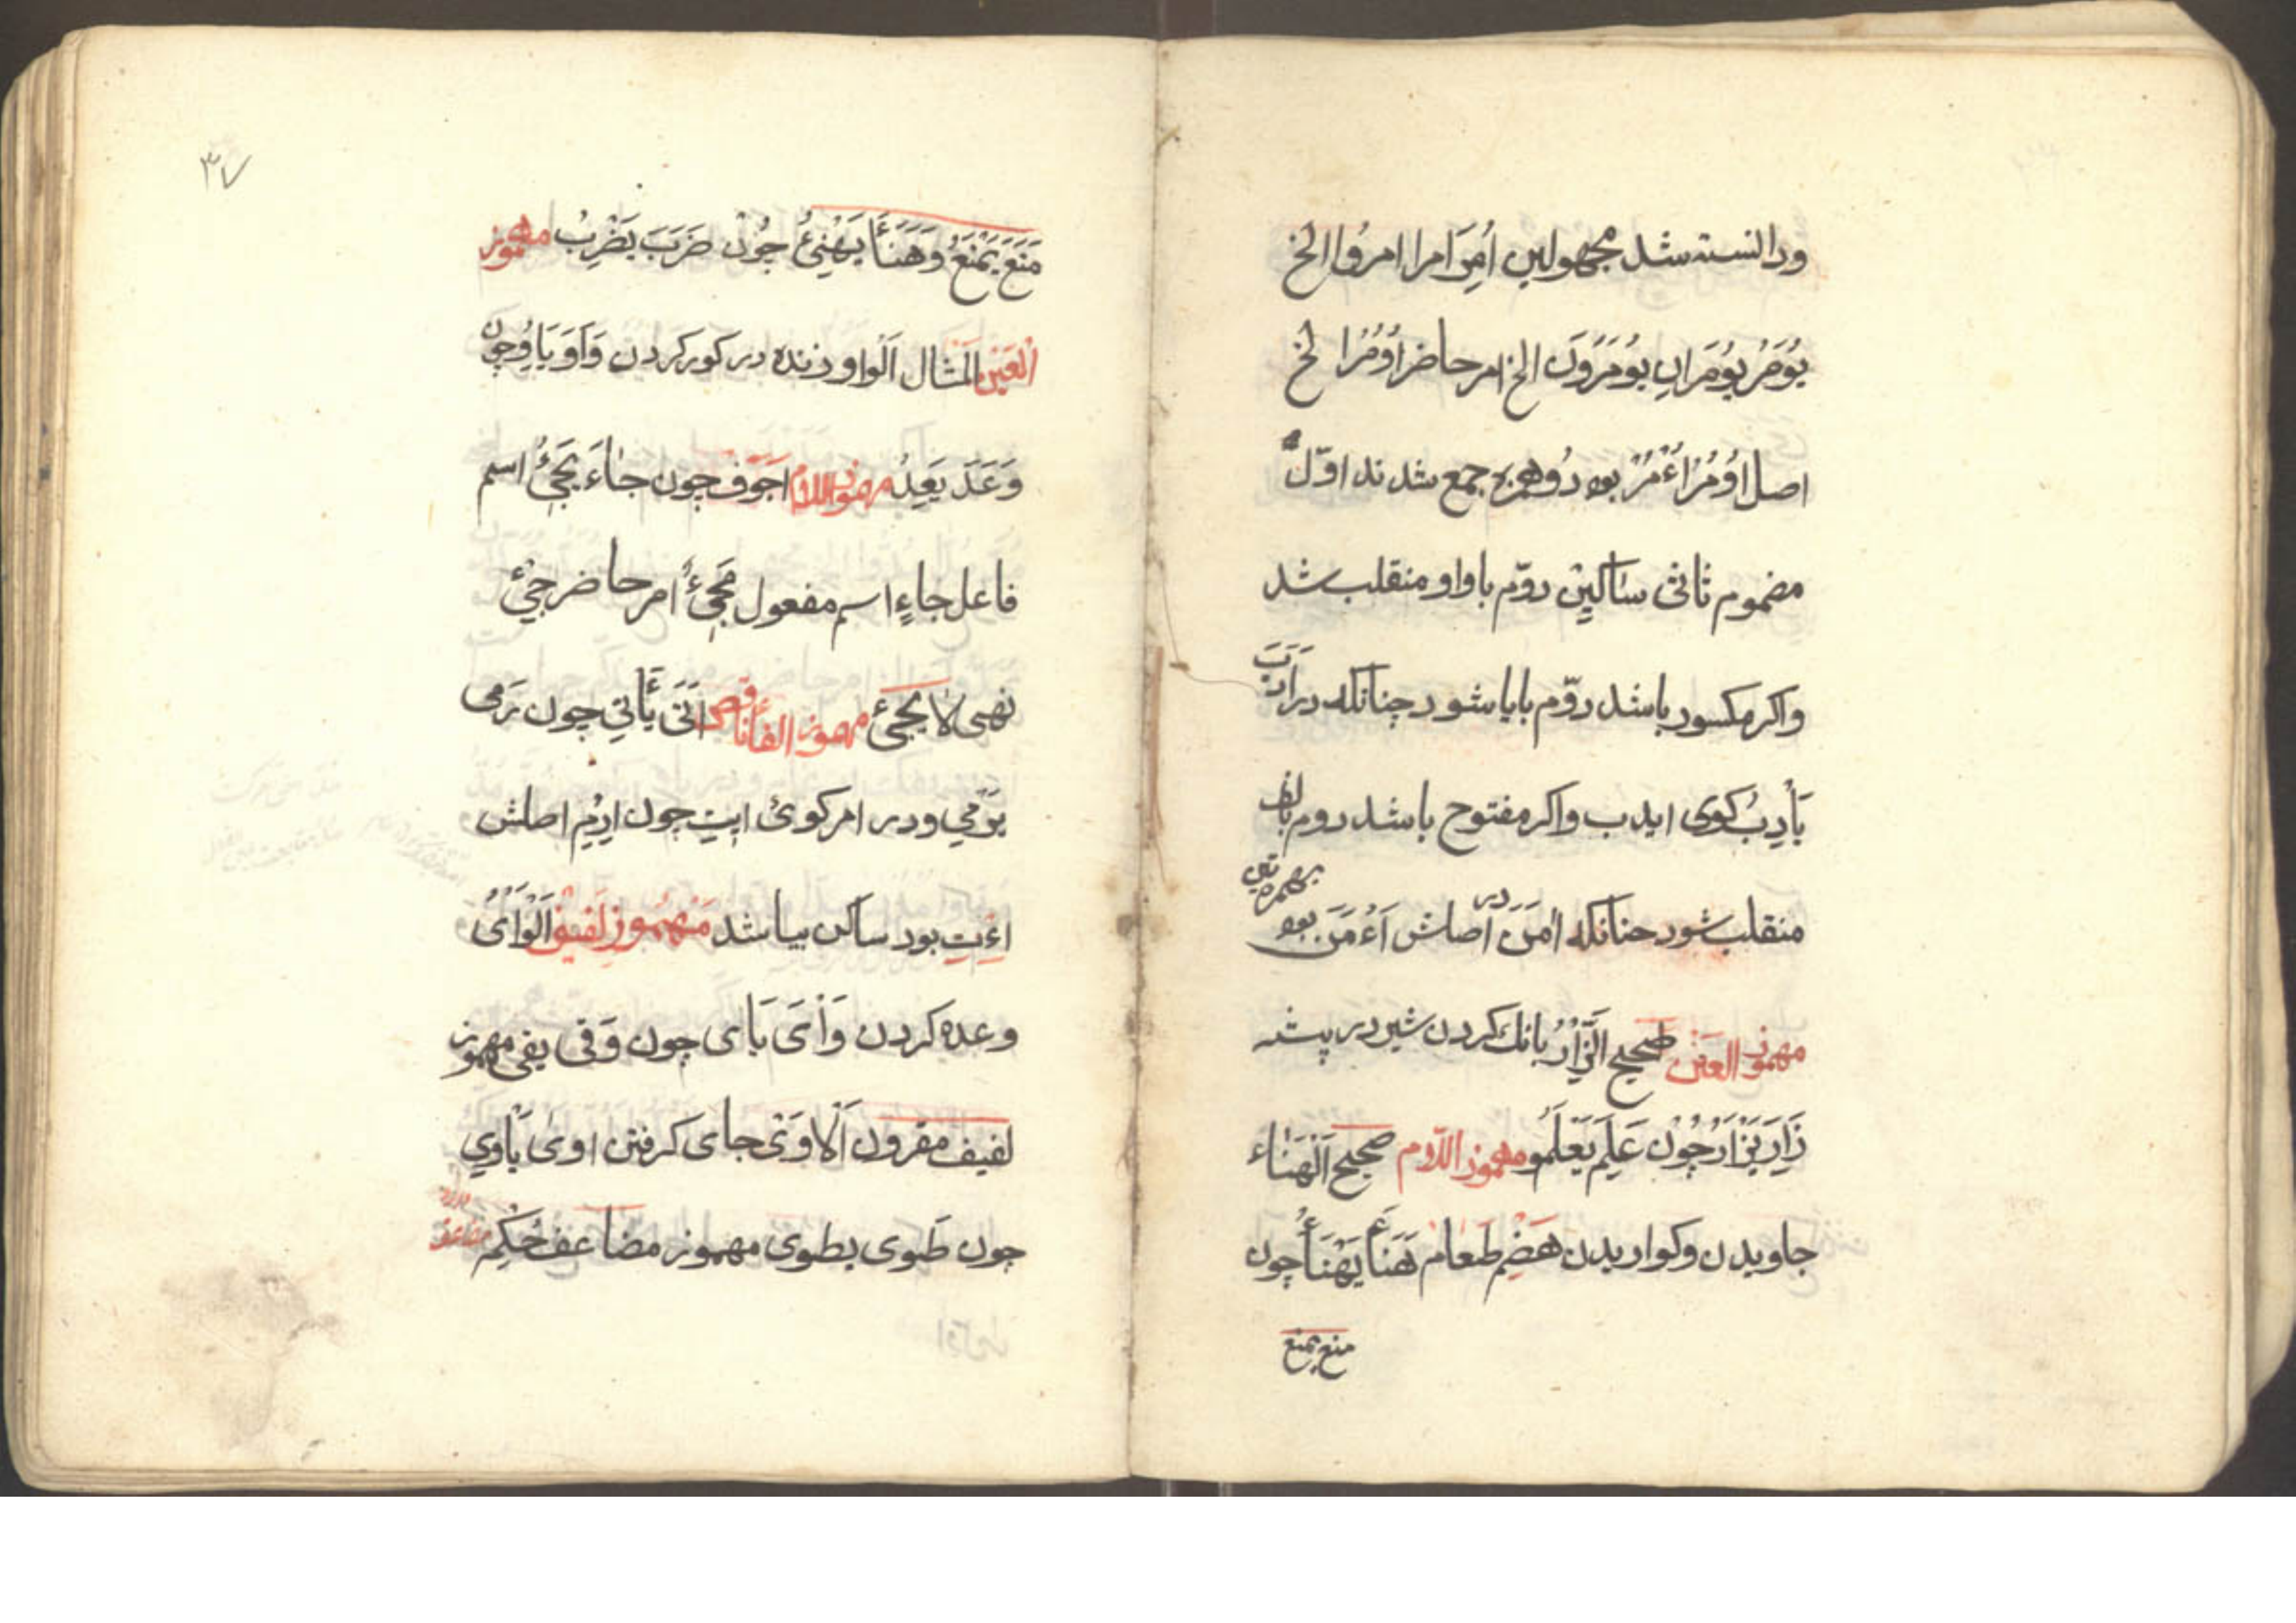 ودانسته شد مجهولین اُمِرَ امرا امروا الخ
یُوْمَرُ یُوْمَرَانِ یُوْمَرُونَ الخ امر حاضر اُوْمُرْا لخ
اصل اُوْمُرْ اُءْمُرْ بود دُو همزه جمع شدند اوّل
مضموم ثانی ساکِنْ دوّم با واو منقلب شد
واکر مکسور باشد دوّم با یا شود چنانکه در اَدَبَ
یَأْدِبُ کوی ایدب واکر مفتوح باشد دوم بالف
منقلب شود چنانکه در اٰمَنَ اصلش اَءْمَنَ بود بهمزه تین
مهموز العَیْن صحیح الزَّأْرُ بانك کردن شیر در پیشه
زَاِرَ یَزْأَرُ چُوْن عَلِمَ یَعْلَمُ و مهموز اللّام صحیح اَلْهَنَاء
جاویدن وکواریدن هَضْمِ طَعام هَنَأَ یَهْنَأُ چون
منع یمنع
٣٧
مَنَعَ یَمْنَعُ وَهَنَأَ یَهْنِئُ چُوْن ضَرَبَ یَضْرِبُ مهموز
اَلْعَیْن المثال اَلْوأد زنده در کور کردن وَأَدَ یَأدُ چون
وَعَدَ یَعِدُ مهموز اللام اجَوَف چون جٰاءَ یَجِیْٔ اسم
فاعل جاءٍ اسم مفعول مَجِیْٔ امر حاضر جِیْٔ
نهی لا یَجِیْٔ مهموز الفأ ناقص اَتَی یَأْتِی چون رَمی
یَرْمِي ودر امر کویٔ ایتِ چون اِرْمِ اصلش
اِءْتِ بود ساکن بیا شد مَهْمُوْز لفیف اَلْوَأْیُ
وعده کردن وَأَیَ یَای چون وَقی یقی مهموز
لفیف مقرون اَلْاوَیْ جای کرفتن اوی یَأْوِي
چون طَوی یطوی مهموز مضاعف حُکْمِ مضاعف دارد